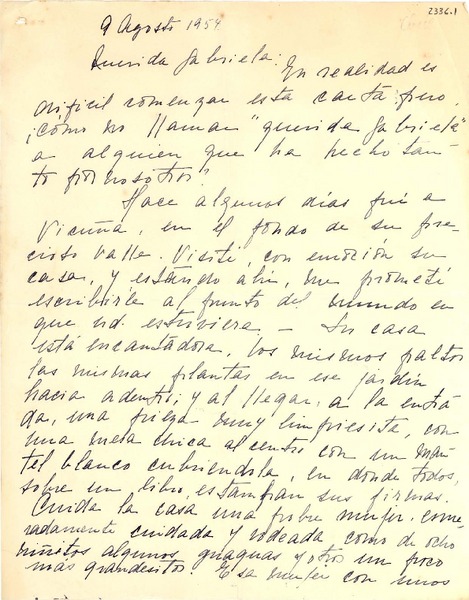 2336.1
9 Agosto 1954
Querida Gabriela: En realidad es
dificil comenzar esta carta, pero,
¡cómo no llamar "querida Gabriela"
a alguien que ha hecho tan-
to por nosotros?
Hace algunos días fuí a
Vicuña, en el fondo de su pre-
cioso valle. Visité, con emoción su
casa, y estando ahí, me prometí
escribirle al punto del mundo en
que ud. estuviera — Su casa
está encantadora, los mismos paltos
las mismas plantas en ese jardín
hacia adentro; y al llegar, a la entra-
da, una pieza muy limpiesita, con
una mesa chica al centro con un man-
tel blanco cubriendola, en donde todos,
sobre un libro, estampan sus firmas.
Cuida la casa una pobre mujer, esme-
radamente cuidada y rodeada, como de ocho
niñitos algunos guaguas y otros un poco
más grandesitos. Esa mujer con unos